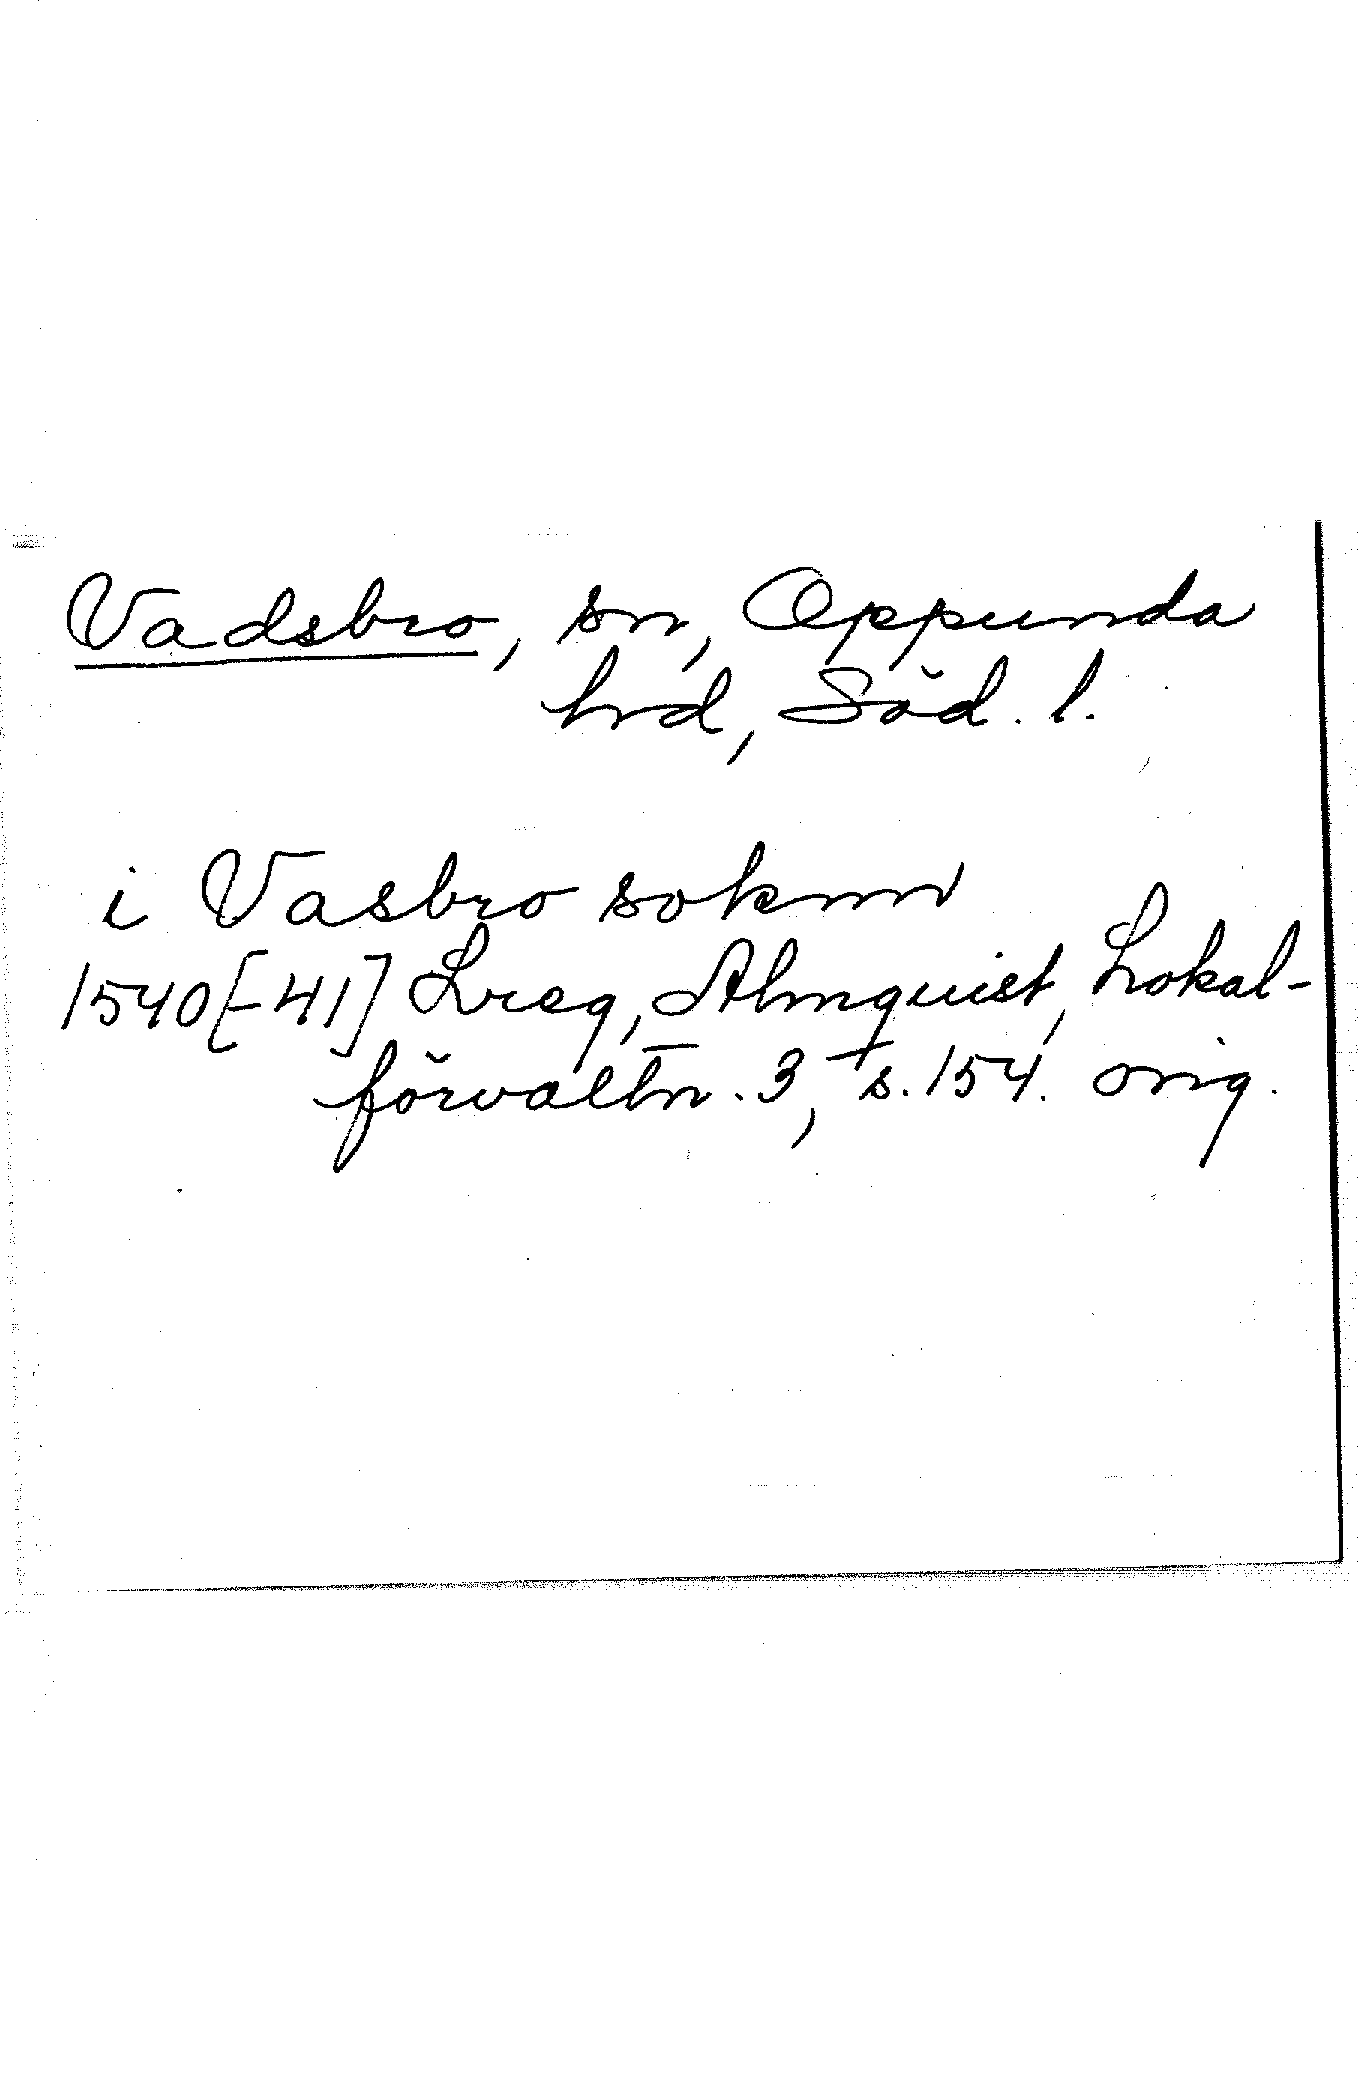 Vadsbro, sn, Oppunda
hrd, Söd. l.
i Vasbro soknn
1540[-41] Lreg, Almquist, Lokal-
förvaltn. 3, s. 154. orig.